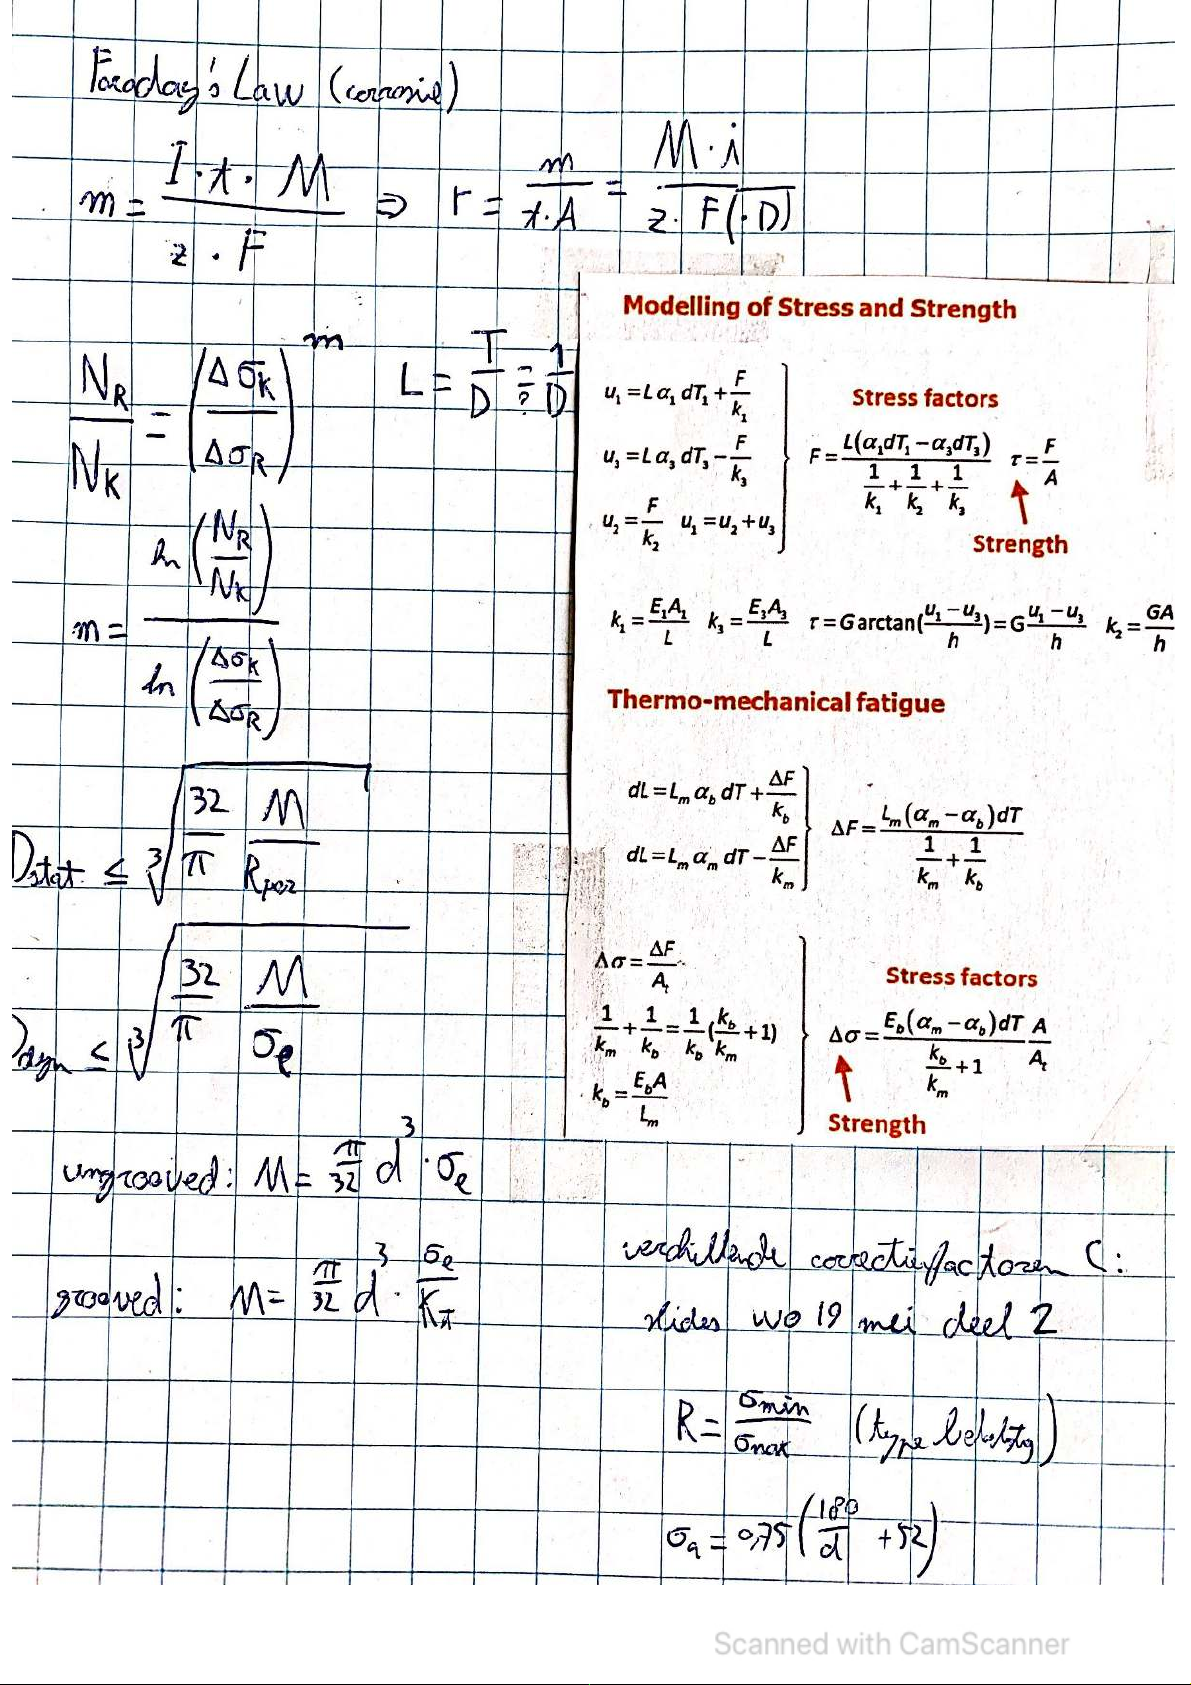 Faraday's Law (corrosie)
m = I·t·M / z·F ⇒ r = m / t·A = M·i / z·F(·D)
N_R / N_K = (Δσ_K / Δσ_R)^m
L = T/D =? 1/D
m = ln(N_R / N_K) / ln(Δσ_K / Δσ_R)
D_stat ≤ ∛(32/π M/R_p02)
D_dyn ≤ ∛(32/π M/σ_e)
ungrooved: M = π/32 d³ · σ_e
grooved: M = π/32 d³ · σ_e/K_t
Modelling of Stress and Strength
u₁ = Lα₁ dT₁ + F/k₁
u₃ = Lα₃ dT₃ − F/k₃
u₂ = F/k₂ u₁ = u₂ + u₃
Stress factors
F = L(α₁dT₁ − α₃dT₃) / (1/k₁ + 1/k₂ + 1/k₃) τ = F/A
Strength
k₁ = E₁A₁/L k₃ = E₃A₃/L τ = G arctan((u₁ − u₃)/h) = G (u₁ − u₃)/h k₂ = GA/h
Thermo-mechanical fatigue
dL = L_m α_b dT + ΔF/k_b
dL = L_m α_m dT − ΔF/k_m
ΔF = L_m(α_m − α_b)dT / (1/k_m + 1/k_b)
Δσ = ΔF/A_t
1/k_m + 1/k_b = 1/k_b (k_b/k_m + 1)
k_b = E_bA/L_m
Stress factors
Δσ = E_b(α_m − α_b)dT / (k_b/k_m + 1) A/A_t
Strength
verschillende correctiefactoren C:
slides wo 19 mei deel 2
R = σmin / σmax (type belasting)
σ_a = 0,75 (180/d + 52)
Scanned with CamScanner